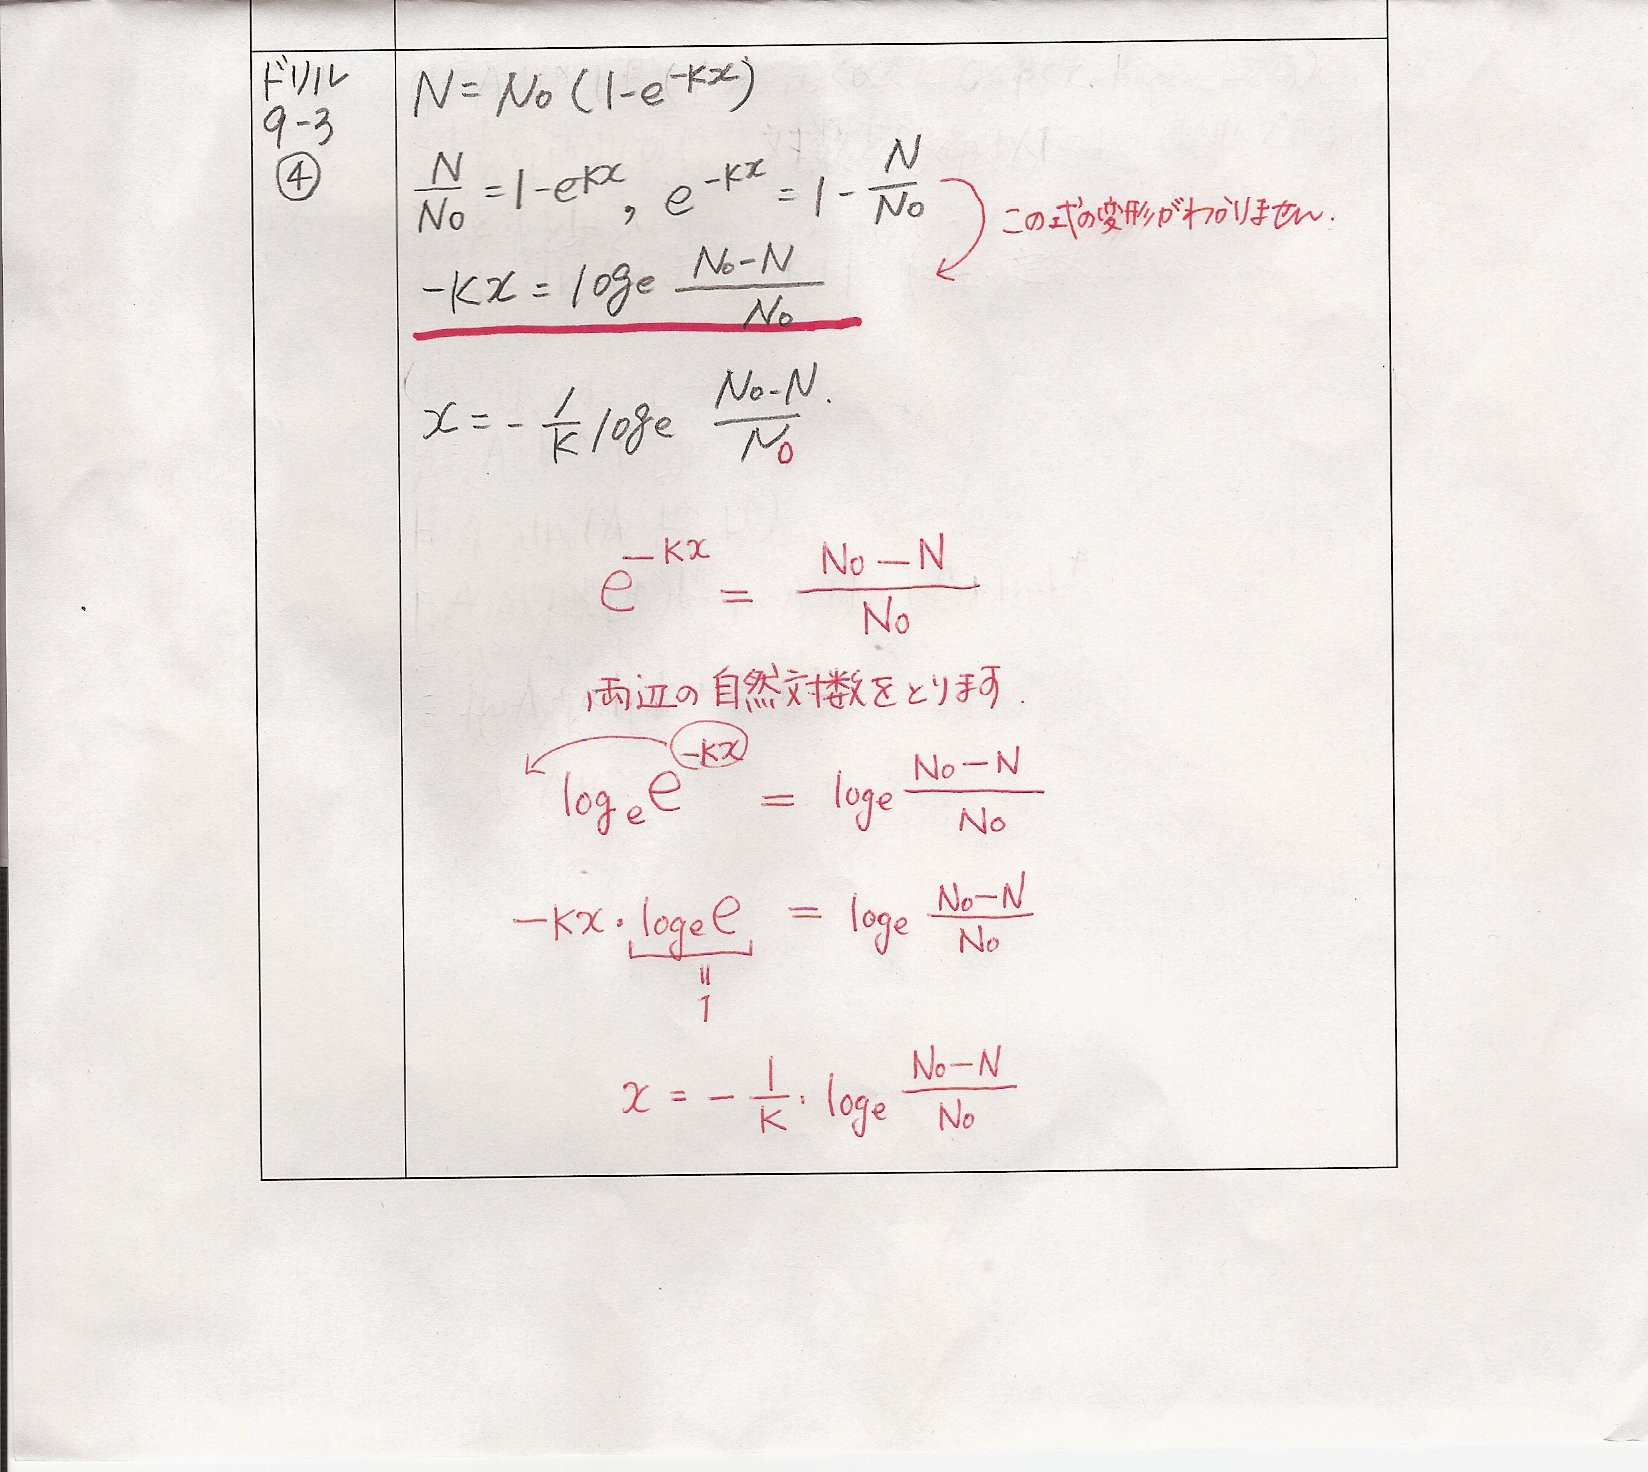 ドリル
9-3
④
N = N₀ (1-e^{-Kx})
N/N₀ = 1-e^{Kx}, e^{-Kx} = 1 - N/N₀
この式の変形がわかりません.
-Kx = logₑ (N₀-N)/N₀
x = - 1/K logₑ (N₀-N)/N₀.
e^{-Kx} = (N₀-N)/N₀
両辺の自然対数をとります.
logₑ e^{-Kx} = logₑ (N₀-N)/N₀
-Kx・logₑ e = logₑ (N₀-N)/N₀
=
1
x = - 1/K・logₑ (N₀-N)/N₀